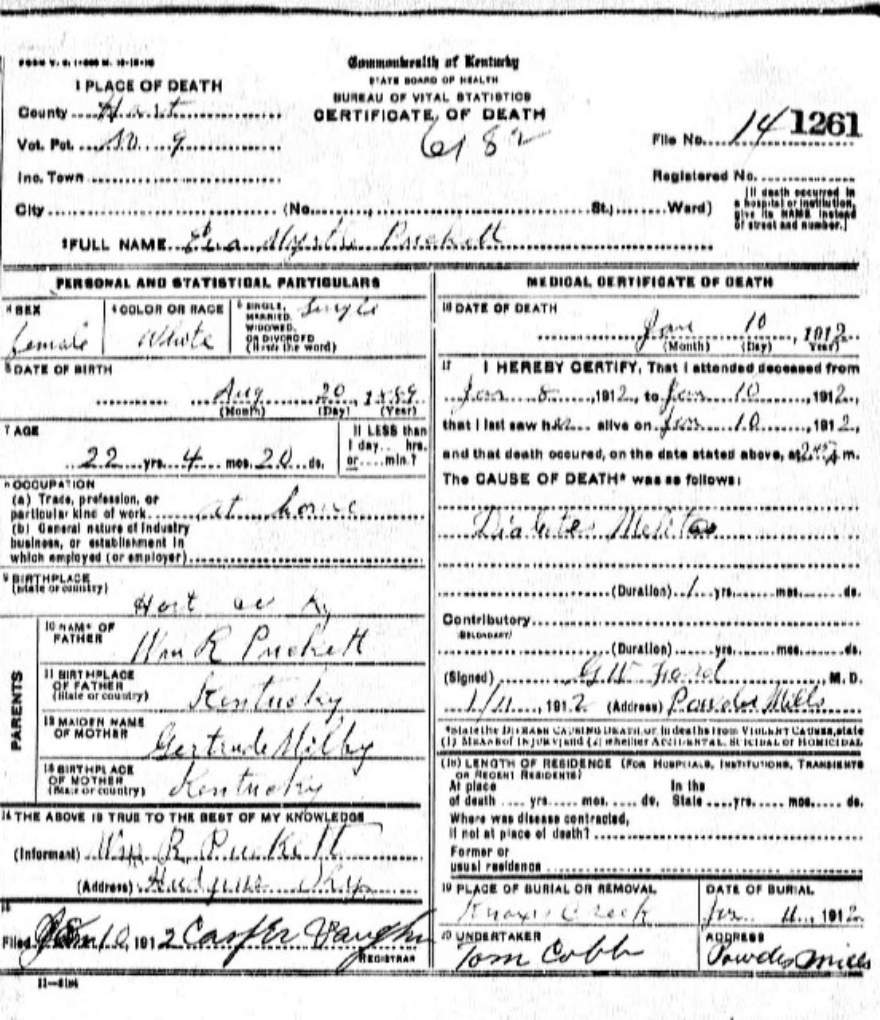 FORM V. S. 1-
Commonwealth of Kentucky
STATE BOARD OF HEALTH
BUREAU OF VITAL STATISTICS
CERTIFICATE OF DEATH
6182
1 PLACE OF DEATH
County Hart
Vot. Pct. No. 9
Inc. Town
City (No. St.; Ward)
File No. 14 1261
Registered No.
[If death occurred in
a hospital or institution,
give its NAME instead
of street and number.]
2 FULL NAME Eva Myrtie Puckett
PERSONAL AND STATISTICAL PARTICULARS
3 SEX
female
4 COLOR OR RACE
White
5 SINGLE, Single
MARRIED,
WIDOWED,
OR DIVORCED
(Write the word)
6 DATE OF BIRTH
Aug 20, 1889
(Month) (Day) (Year)
7 AGE
22 yrs. 4 mos. 20 ds.
If LESS than
1 day ... hrs.
or ... min.?
8 OCCUPATION
(a) Trade, profession, or
particular kind of work at home
(b) General nature of industry
business, or establishment in
which employed (or employer)
9 BIRTHPLACE
(State or country)
Hart co Ky
PARENTS
10 NAME OF
FATHER
Wm R Puckett
11 BIRTHPLACE
OF FATHER
(State or country)
Kentucky
12 MAIDEN NAME
OF MOTHER
Gertrude Milby
13 BIRTHPLACE
OF MOTHER
(State or country)
Kentucky
14 THE ABOVE IS TRUE TO THE BEST OF MY KNOWLEDGE
(Informant) Wm R Puckett
(Address) Hudgins
15
Filed Jan 10, 1912 Casper Vaughn
REGISTRAR
11-
MEDICAL CERTIFICATE OF DEATH
16 DATE OF DEATH
Jan 10, 1912
(Month) (Day) Year)
17 I HEREBY CERTIFY, That I attended deceased from
Jan 8, 1912, to Jan 10, 1912,
that I last saw her alive on Jan 10, 1912,
and that death occured, on the date stated above, at 2:45 m.
The CAUSE OF DEATH* was as follows:
Diabetes Melitus
(Duration) 1 yrs. mos. ds.
Contributory
(SECONDARY)
(Duration) yrs. mos. ds.
(Signed) G W Ford, M. D.
1/11, 1912 (Address) Powder Mills
*State the DISEASE CAUSING DEATH, or in deaths from VIOLENT CAUSES, state
(1) MEANS of INJURY; and (2) whether ACCIDENTAL, SUICIDAL or HOMICIDAL
18 LENGTH OF RESIDENCE (FOR HOSPITALS, INSTITUTIONS, TRANSIENTS
OR RECENT RESIDENTS)
At place In the
of death .... yrs. .... mos. .... ds. State .... yrs. .... mos. .... ds.
Where was disease contracted,
if not at place of death?
Former or
usual residence
19 PLACE OF BURIAL OR REMOVAL
Knoxs Creek
DATE OF BURIAL
Jan 11, 1912
20 UNDERTAKER
Tom Cobb
ADDRESS
Powder Mills